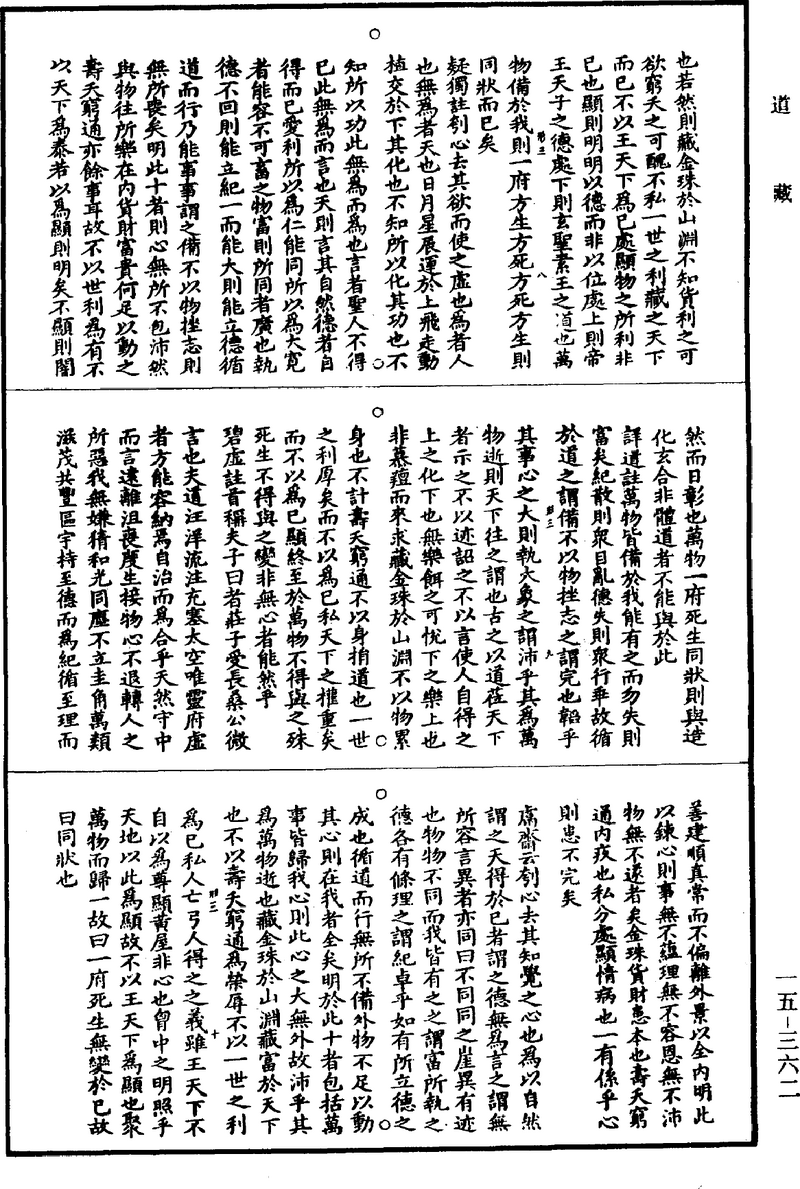 道藏
也若然則藏金珠於山淵不知貨利之可
欲窮夭之可醜不私一世之利藏之天下
而已不以王天下為已處顯物之所利非
已也顯則明明以德而非以位處上則帝
王天子之德處下則玄聖素王之道也萬
物備於我則一府方生方死方死方生則
同狀而已矣
疑獨註刳心去其欲而使之虛也為者人
也無為者天也日月星辰運於上飛走動
植交於下其化也不知所以化其功也不
知所以功此無為而為也言者聖人不得
已此無為而言也天則言其自然德者自
得而已愛利所以為仁能同所以為大寬
者能容不可畜之物富則所同者廣也執
德不回則能立紀一而能大則能立德循
道而行乃能事事謂之備不以物挫志則
無所喪矣明此十者則心無所不包沛然
與物往所樂在內貨財富貴何足以動之
壽夭窮通亦餘事耳故不以世利為有不
以天下為泰若以為顯則明矣不顯則闇
然而日彰也萬物一府死生同狀則與造
化玄合非體道者不能與於此
詳道註萬物皆備於我能有之而勿失則
富矣紀散則眾目亂德失則眾行乖故循
於道之謂備不以物挫志之謂完也韜乎
其事心之大則執大象之謂沛乎其為萬
物逝則天下往之謂也古之以道莅天下
者示之不以迹詔之不以言使人自得之
上之化下也無樂餌之可悅下之樂上也
非慕羶而來求藏金珠於山淵不以物累
身也不計壽夭窮通不以身拍道也一世
之利厚矣而不以為已私天下之權重矣
而不以為已顯終至於萬物不得與之殊
死生不得與之變非無心者能然乎
碧虛註首稱夫子曰者莊子受長桑公微
言也夫道汪洋流注充塞太空唯靈府虛
者方能容納焉自治而為合乎天然守中
而言遠離沮喪慶生接物心不退轉人之
所惡我無嫌猜和光同塵不立圭角萬類
滋茂共豐區宇持至德而為紀循至理而
善建順真常而不偏離外景以全內明此
以鍊心則事無不蘊理無不容恩無不沛
物無不遂者矣金珠貨財患本也壽夭窮
通內疾也私分處顯情病也一有係乎心
則患不完矣
鬳齋云刳心去其知覺之心也為以自然
謂之天得於已者謂之德無為言之謂無
所容言異者亦同曰不同同之崖異有迹
也物物不同而我皆有之之謂富所執之
德各有條理之謂紀卓乎如有所立德之
成也循道而行無所不備外物不足以動
其心則在我者全矣明於此十者包括萬
事皆歸我心則此心之大無外故沛乎其
為萬物逝也藏金珠於山淵藏富於天下
也不以壽夭窮通為榮辱不以一世之利
為已私人亡弓人得之之義雖王天下不
自以為尊顯黃屋非心也胷中之明照乎
天地以此為顯故不以王天下為顯也聚
萬物而歸一故曰一府死生無變於已故
曰同狀也
一五－三六二